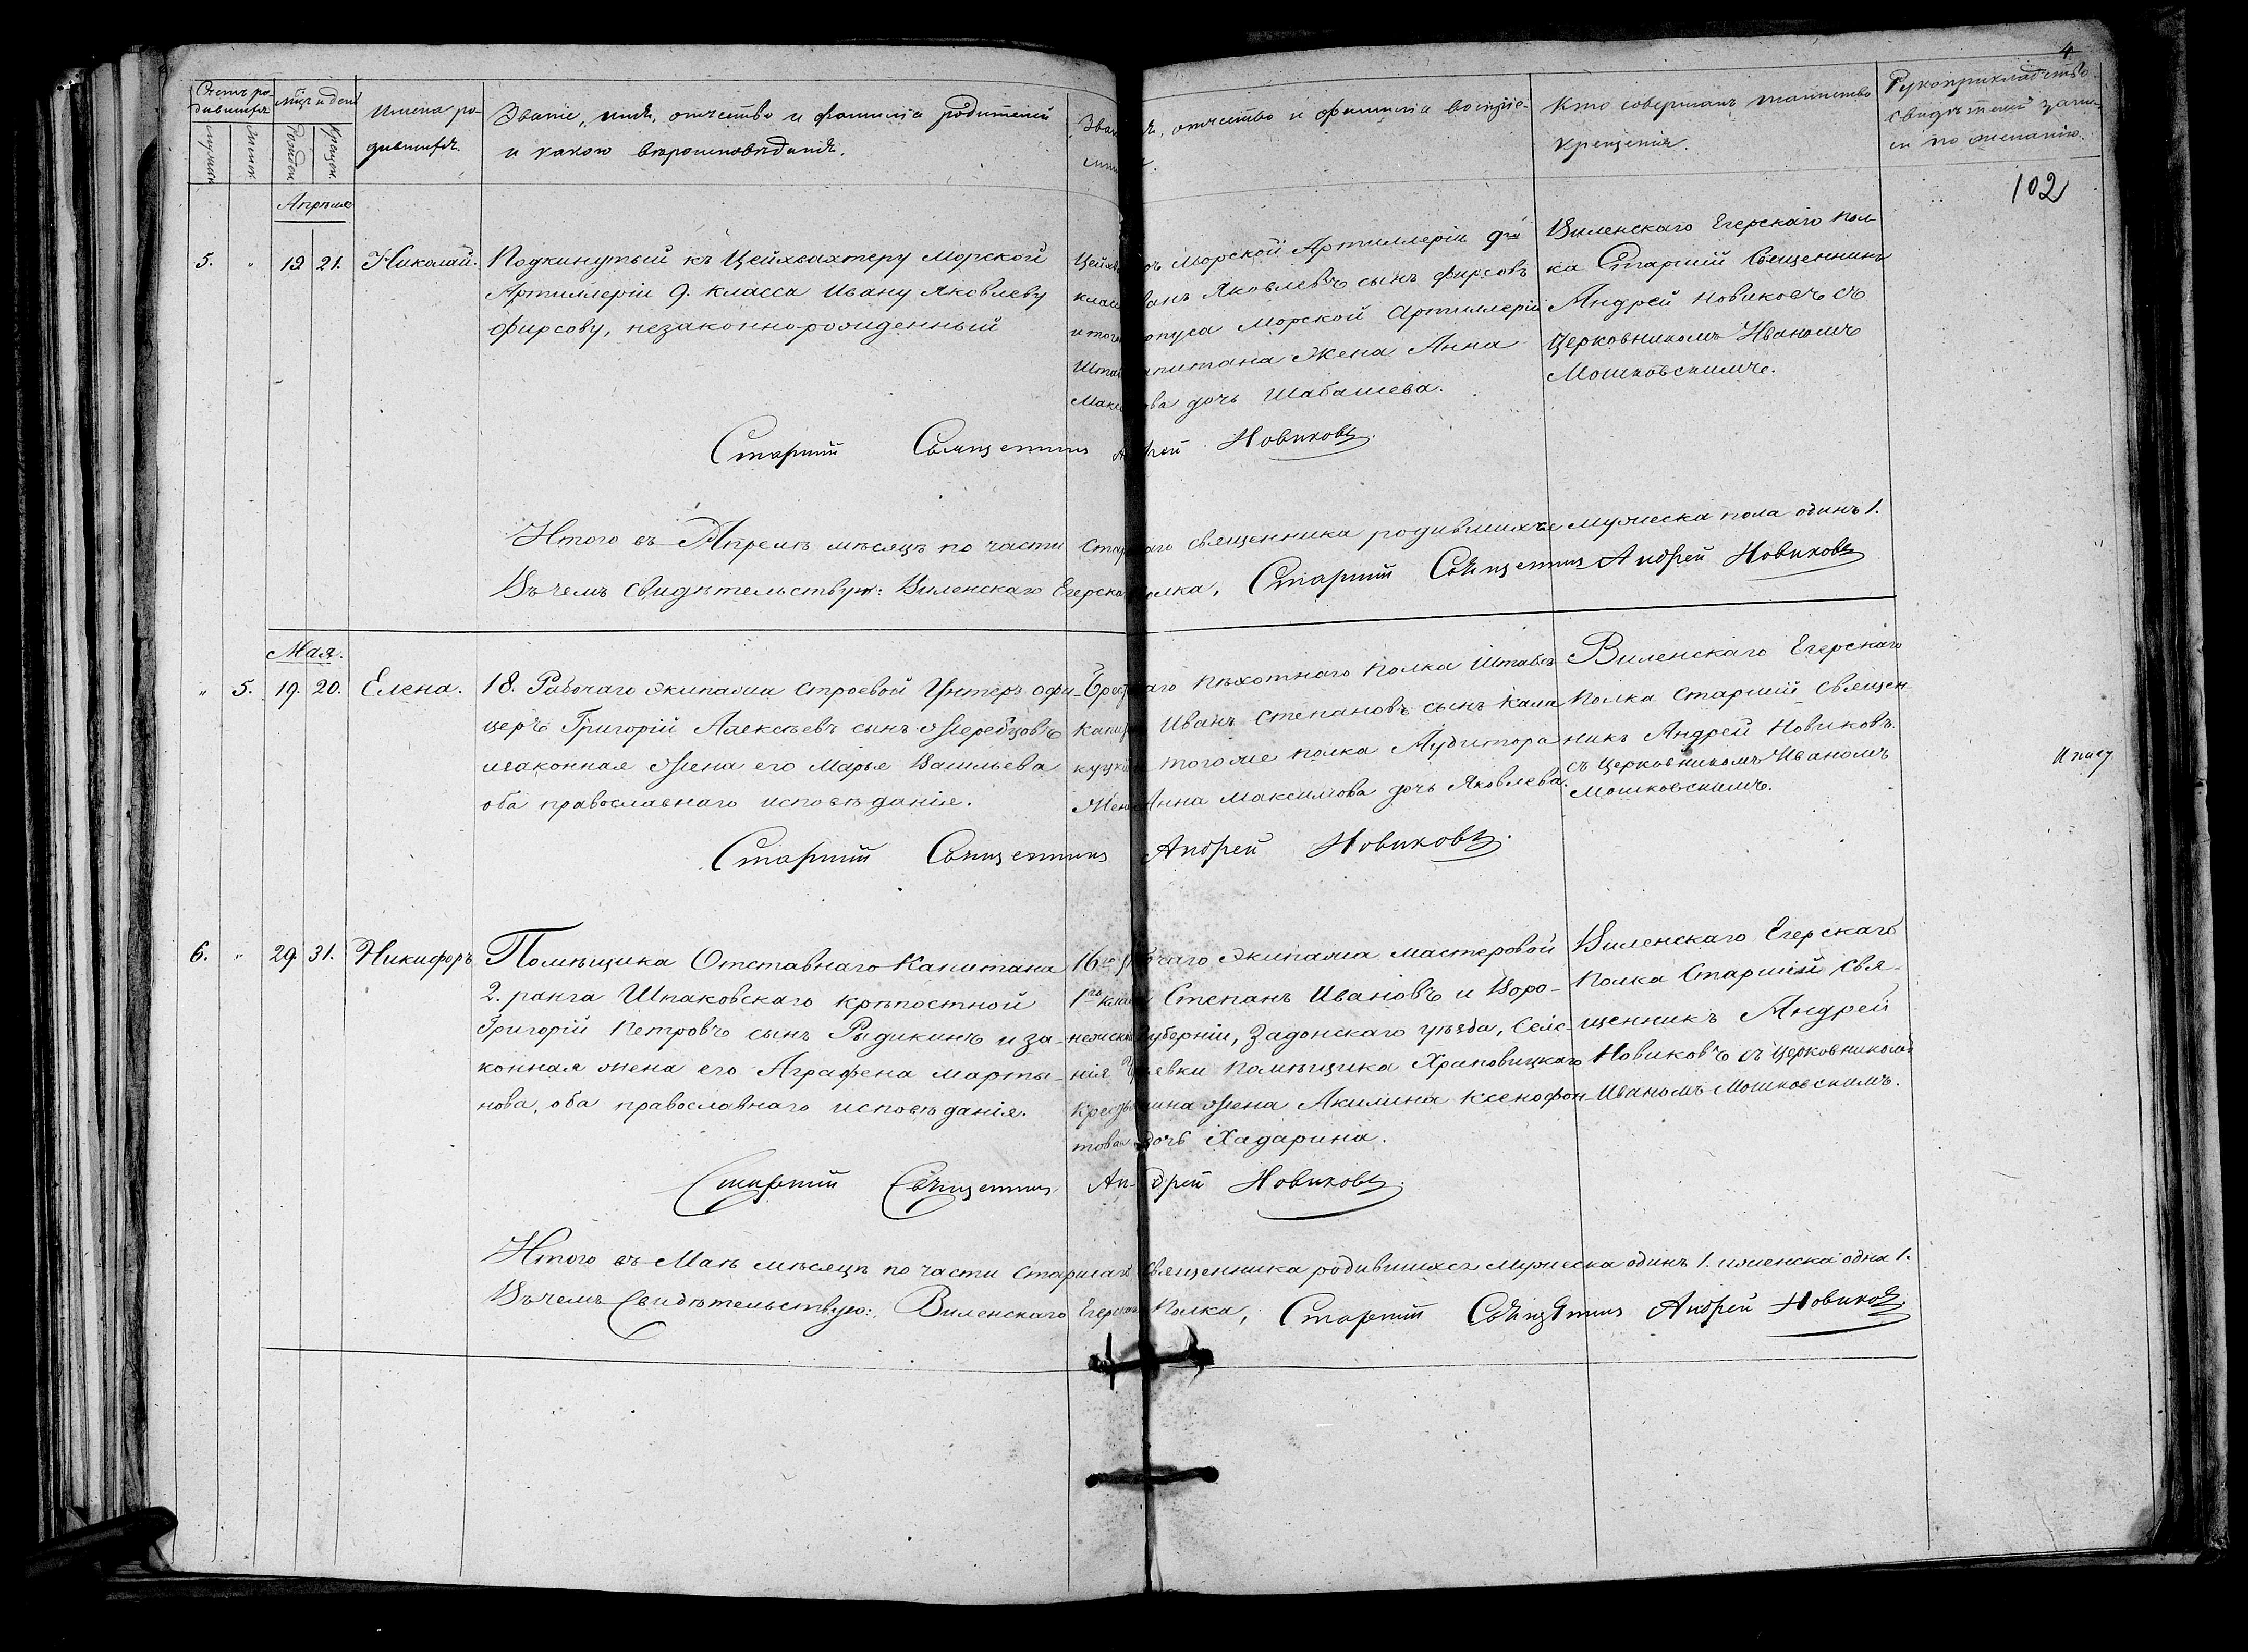 4
Счетъ ро-
дившихся
мѣсяцъ и день
Имена ро-
дившихся.
Званіе, имя, отчество и фамилія родителей
и какого вѣроисповѣданія.
отчество и фамилія воспріе-
Кто совершалъ таинство
крещенія.
Рукоприкладство
свидѣтелей записи
по желанію.
102
Апрѣля
5. " 19 21. Николай.
Подкинутый къ Цейхвахтеру Морской
Артиллеріи 9. класса Ивану Яковлеву
Фирсову, незаконнорожденный
Морской Артиллеріи 9го
класса Иванъ Яковлевъ сынъ Фирсовъ
и того корпуса Морской Артиллеріи
капитана жена Анна
Максимова дочь Шабашева.
Виленскаго Егерскаго пол-
ка Старшій Священникъ
Андрей Новиковъ съ
Церковникомъ Иваномъ
Мошковскимъ.
Старшій Священникъ Андрей Новиковъ.
Итого въ Апрелѣ мѣсяцѣ по части Старшаго священника родившихся мужеска пола одинъ 1.
Въ чемъ свидѣтельствую: Виленскаго Егерскаго полка, Старшій Священникъ Андрей Новиковъ
Мая.
" 5. 19. 20. Елена.
18. Рабочаго экипажа строевой Унтеръ офи-
церъ Григорій Алексѣевъ сынъ Жеребцовъ
и законная жена его Марья Васильева
оба православнаго исповѣданія.
пѣхотнаго полка Штабсъ
Иванъ Степановъ сынъ Кала
тогоже полка Аудитора
жена Анна Максимова дочь Яковлева.
Виленскаго Егерскаго
полка Старшій Священ-
никъ Андрей Новиковъ
съ Церковникомъ Иваномъ
Мошковскимъ.
Старшій Священникъ Андрей Новиковъ.
6. " 29. 31. Никифоръ
Помѣщика Отставнаго Капитана
2. ранга Шпаковскаго крѣпостной
Григорій Петровъ сынъ Рыдикинъ и за-
конная жена его Аграфена Марты-
нова, оба православнаго исповѣданія.
16го Рабочаго экипажа мастеровой
1го класса Степанъ Ивановъ и Воро-
нежской Губерніи, Задонскаго уѣзда, Селе-
нія помѣщика Храповицкаго
крестьянина жена Акилина Ксенофон-
това дочь Хадарина.
Виленскаго Егерскаго
полка Старшій Свя-
щенникъ Андрей
Новиковъ съ церковникомъ
Иваномъ Мошковскимъ.
Старшій Священникъ Андрей Новиковъ.
Итого въ Маѣ мѣсяцѣ по части Старшаго Священника родившихся мужеска одинъ 1. и женска одна 1.
Въ чемъ Свидѣтельствую: Виленскаго Егерскаго Полка, Старшій Священникъ Андрей Новиковъ.